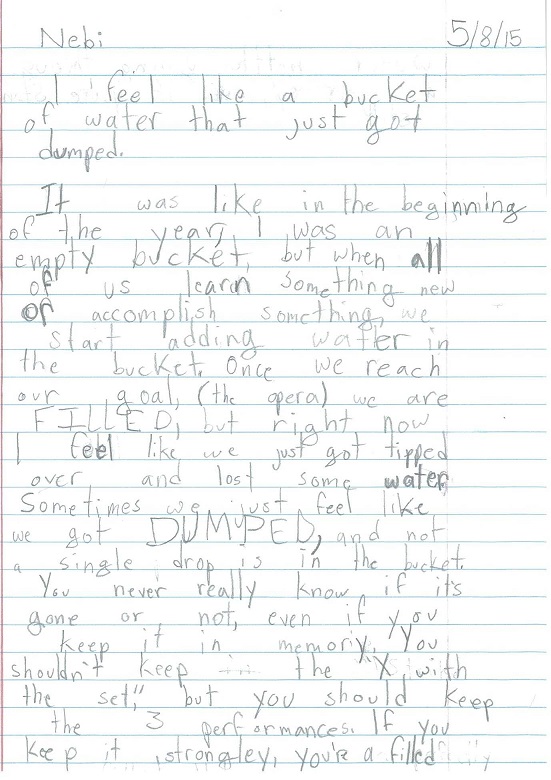 Nebi 5/8/15
I feel like a bucket
of water that just got
dumped.
It was like in the beginning
of the year, I was an
empty bucket, but when all
of us learn something new
or accomplish something, we
start adding water in
the bucket. Once we reach
our goal, (the opera) we are
FILLED, but right now
I feel like we just got tipped
over, and lost some water.
Sometimes we just feel like
we got DUMPED, and not
a single drop is in the bucket.
You never really know, if it's
gone or not, even if you
keep it in memory. You
shouldn't keep the "X, with
the set," but you should keep
the 3 performances. If you
keep it strongley, you're a filled